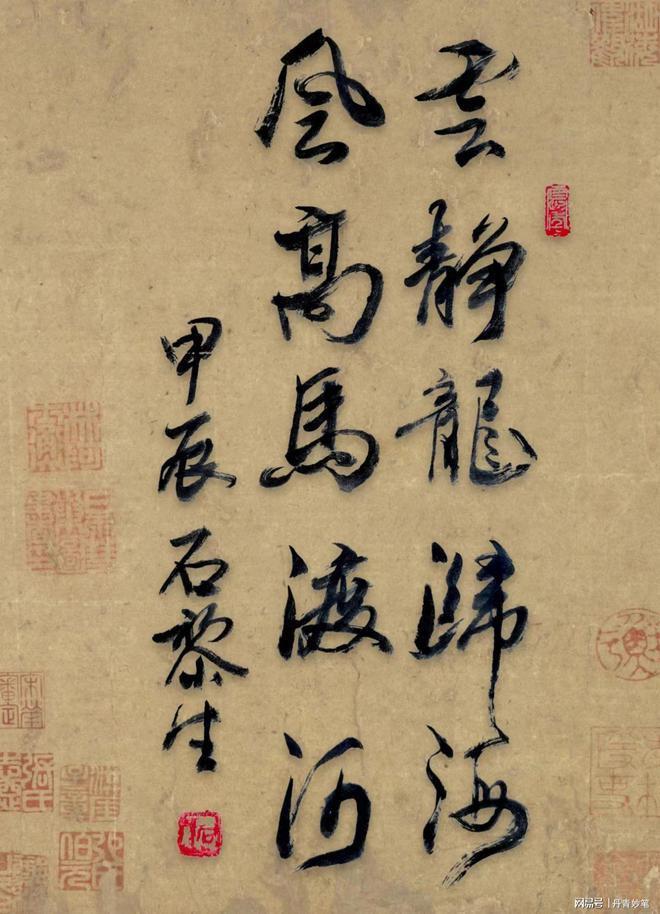 雲静龍歸海
風高馬渡河
甲辰 石黎生
网易号 | 丹青妙笔